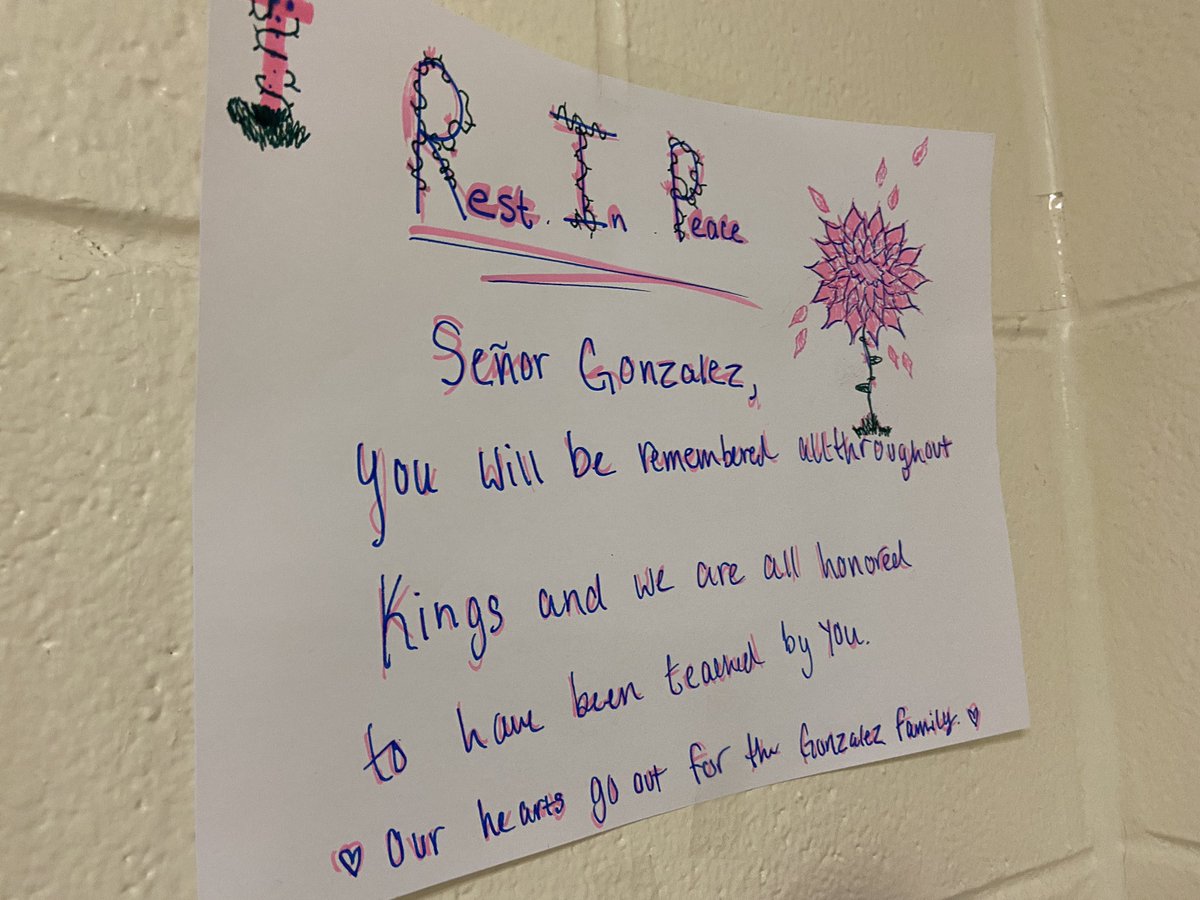 Rest. In. Peace
Señor Gonzalez,
You will be remembered allthroughout
Kings and we are all honored
to have been teached by you.
♡ our hearts go out for the Gonzalez family. ♡